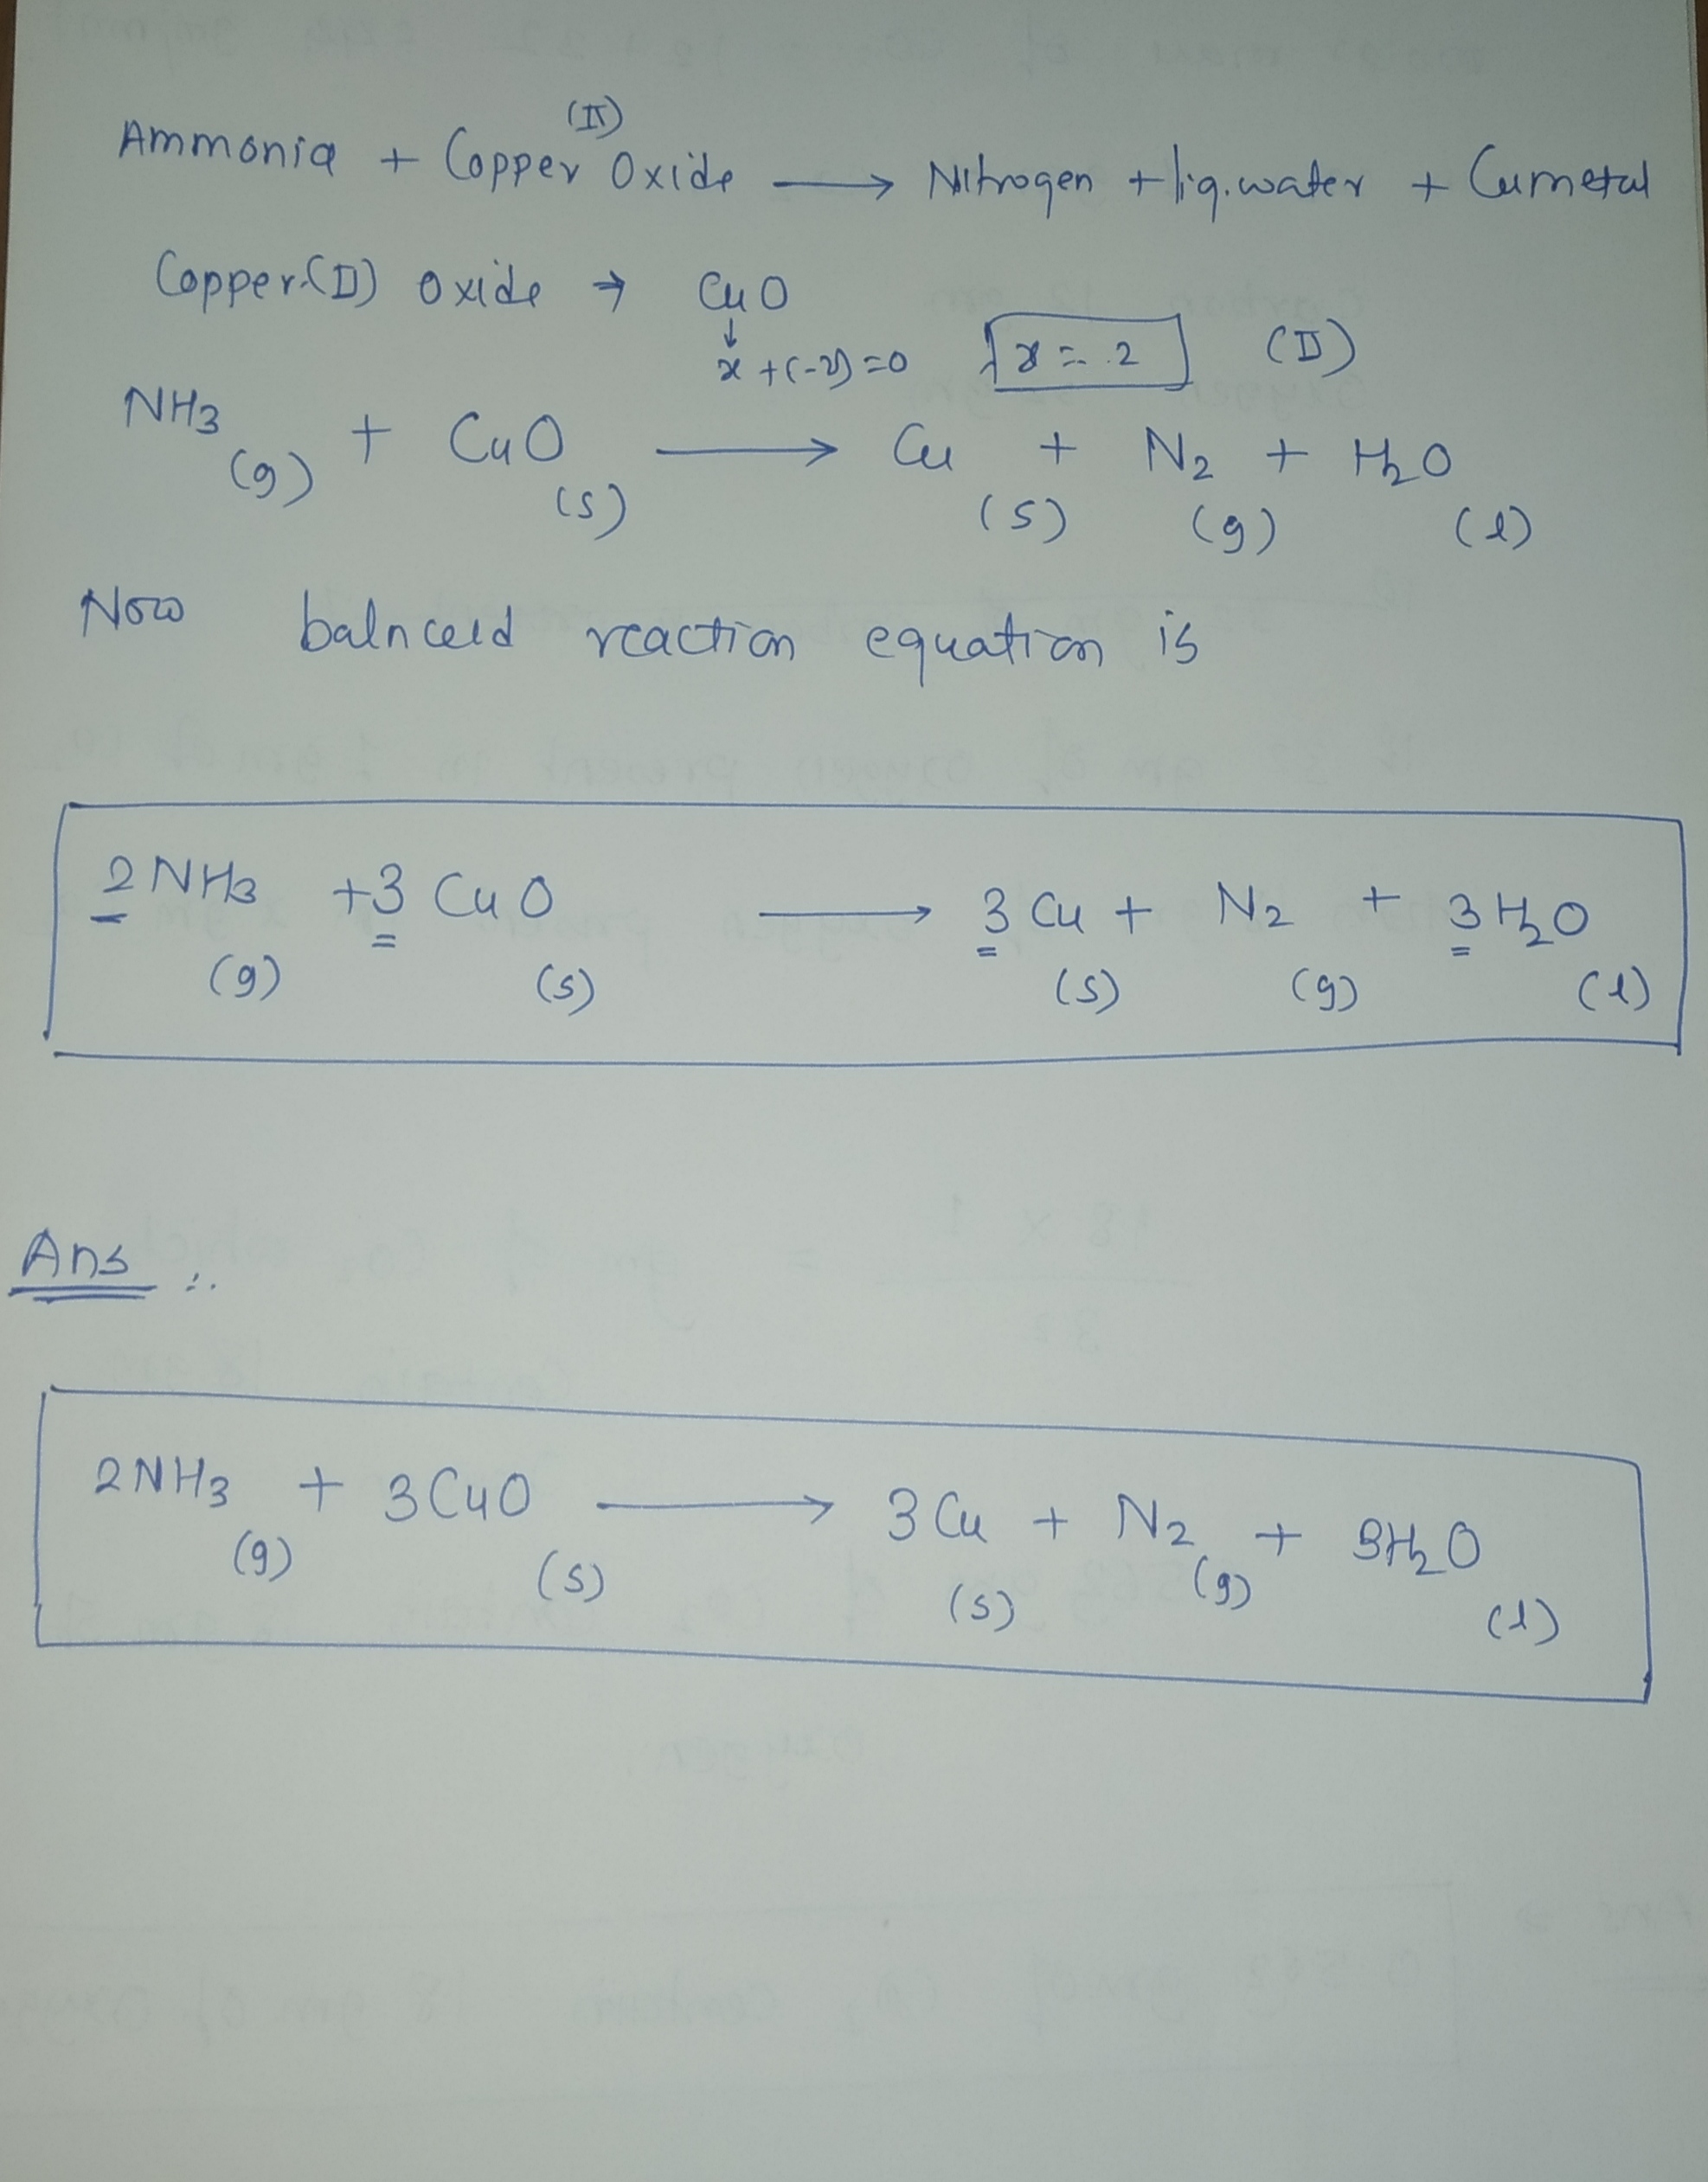 Ammonia + Copper (II) Oxide → Nitrogen + liq. water + Cu metal
Copper (II) Oxide → CuO
↓
x + (-2) = 0 x = 2 (II)
NH3 (g) + CuO (s) → Cu (s) + N2 (g) + H2O (l)
Now balnceed reaction equation is
2NH3 (g) + 3CuO (s) → 3Cu (s) + N2 (g) + 3H2O (l)
Ans :.
2NH3 (g) + 3CuO (s) → 3Cu (s) + N2 (g) + 3H2O (l)